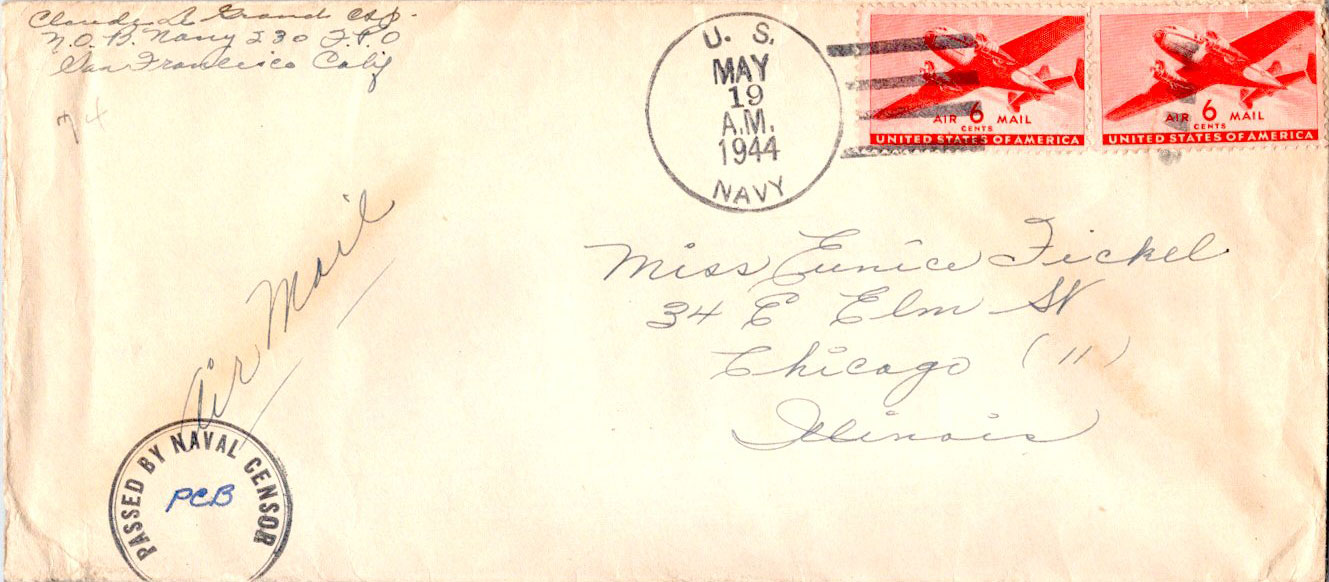 Claude L. Grand
N.O.B. Navy 230 F.P.O
San Francisco Calif
74
U. S.
MAY
19
A.M.
1944
NAVY
AIR 6 MAIL
CENTS
UNITED STATES OF AMERICA
AIR 6 MAIL
CENTS
UNITED STATES OF AMERICA
Air Mail
Miss Eunice Fickel
34 E Elm St
Chicago (11)
Illinois
PASSED BY NAVAL CENSOR
PCB